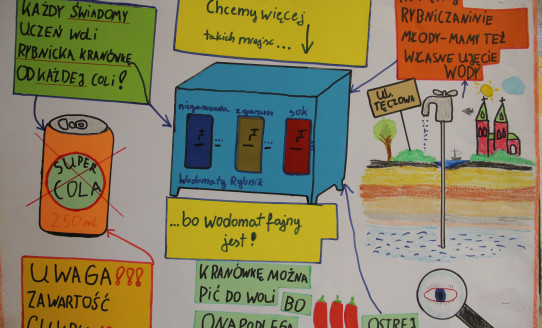 KAŻDY ŚWIADOMY
UCZEŃ WOLI
RYBNICKĄ KRANÓWKĘ
OD KAŻDEJ COLI!
Chcemy więcej
takich miejsc...
RYBNICZANINIE
MŁODY-MAMY TEŻ
WŁASNE UJĘCIE
WODY
niegazowana
z gazem
sok
Wodomaty Rybnik
UL.
TĘCZOWA
SUPER
COLA
250 ml
...bo Wodomat fajny
jest!
UWAGA!!!
ZAWARTOŚĆ
KRANÓWKĘ MOŻNA
PIĆ DO WOLI
BO
ONA PODLEGA
OSTREJ